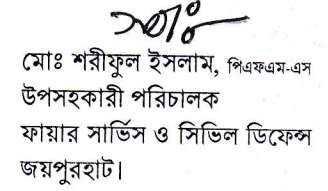 মোঃ শরীফুল ইসলাম, পিএফএম-এস
উপসহকারী পরিচালক
ফায়ার সার্ভিস ও সিভিল ডিফেন্স
জয়পুরহাট।